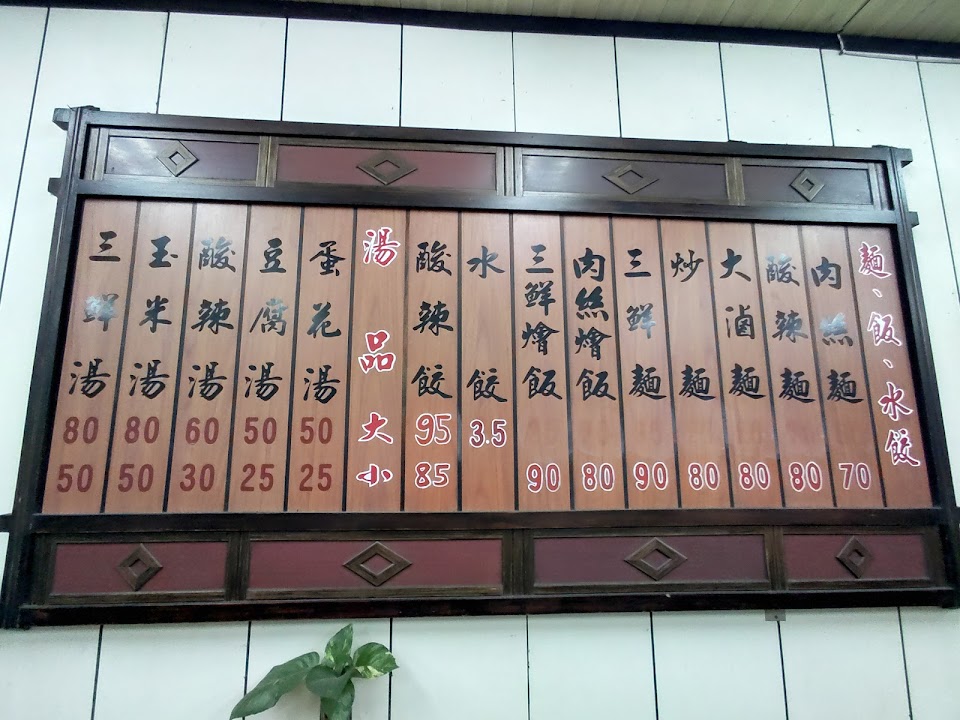 麵、飯、水餃
肉絲麵 70
酸辣麵 80
大滷麵 80
炒麵 80
三鮮麵 90
肉絲燴飯 80
三鮮燴飯 90
水餃 3.5
酸辣餃 95 85
湯品 大 小
蛋花湯 50 25
豆腐湯 50 25
酸辣湯 60 30
玉米湯 80 50
三鮮湯 80 50